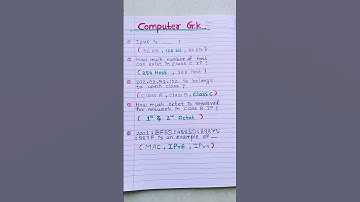 Computer G.k
① Ipv6 is ___ :
( 32 bit, 128 bit, 64 bit )
② How much number of host
can exist in class C IP ?
( 254 Host , 255 Host )
③ 202.02.52.120 is belongs
to which class ?
( class A, class B, Class C )
④ How much octet is reserved
for network in class B IP ?
( 1st & 2nd Octet )
⑤
is an example of
( MAC , IPv6 , IPv4 )